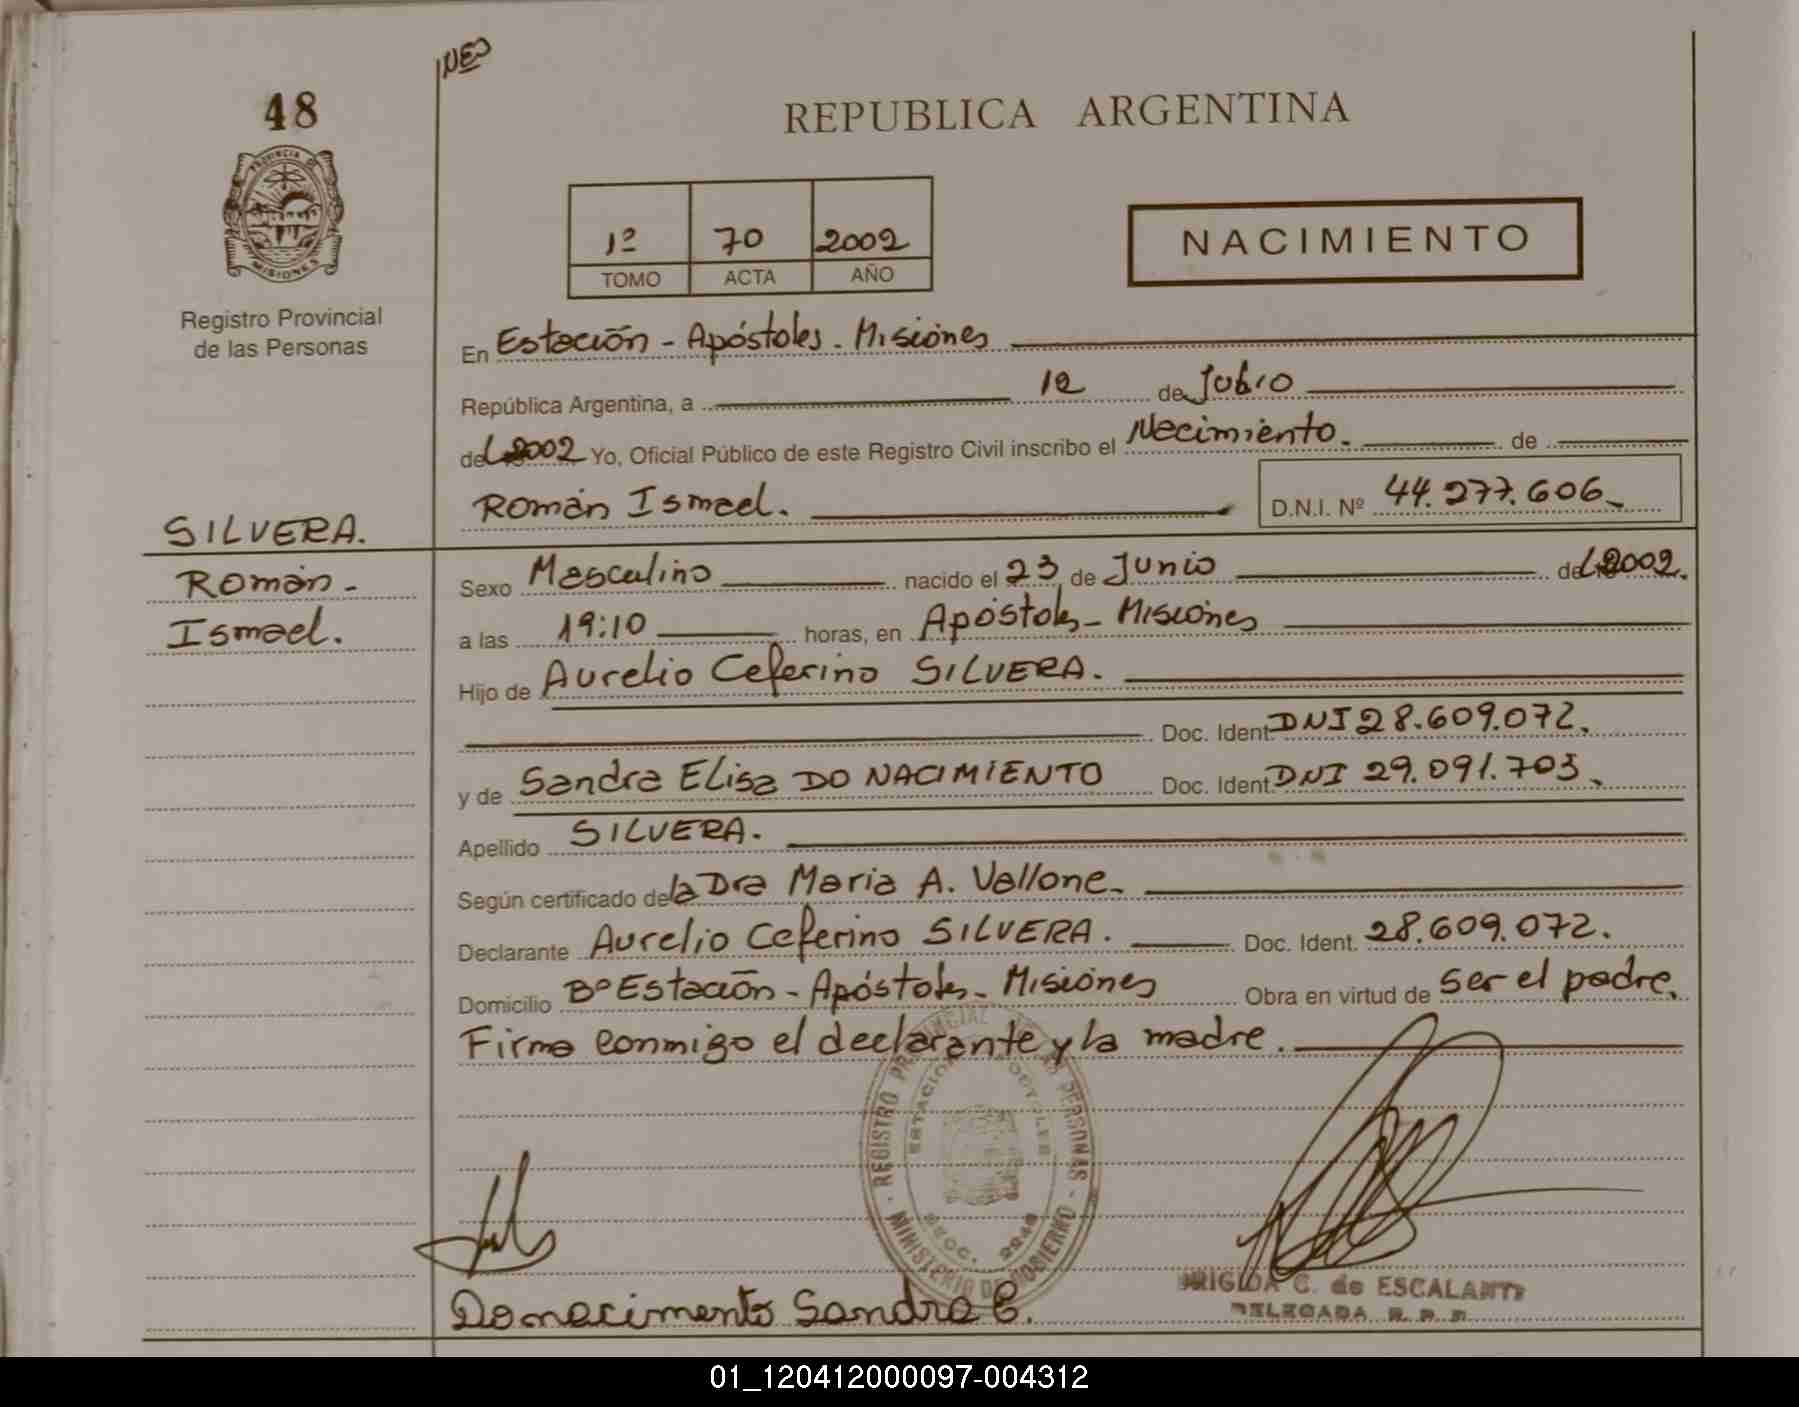 INES
48
REPUBLICA ARGENTINA
PROVINCIA DE
MISIONES
1º 70 2002
TOMO ACTA AÑO
NACIMIENTO
Registro Provincial
de las Personas
En Estación - Apóstoles - Misiones
República Argentina, a 12 de Julio
del 2002 Yo, Oficial Público de este Registro Civil inscribo el Nacimiento. de
Román Ismael. D.N.I. Nº 44.277.606
SILVERA.
Román -
Ismael.
Sexo Masculino nacido el 23 de Junio del 2002.
a las 19:10 horas, en Apóstoles - Misiones
Hijo de Aurelio Ceferino SILVERA.
Doc. Ident. DNI 28.609.072.
y de Sandra Elisa DO NACIMIENTO Doc. Ident. DNI 29.091.703.
Apellido SILVERA.
Según certificado de la Dra Maria A. Vallone.
Declarante Aurelio Ceferino SILVERA. Doc. Ident. 28.609.072.
Domicilio Bº Estación - Apóstoles - Misiones Obra en virtud de ser el padre.
Firma conmigo el declarante y la madre.
REGISTRO PROVINCIAL DE LAS PERSONAS
MINISTERIO DE GOBIERNO
ESTACION APOSTOLES
SECC. 2246
Donacimento Sandra E.
BRIGIDA C. de ESCALANTE
DELEGADA R. P. P.
01_120412000097-004312